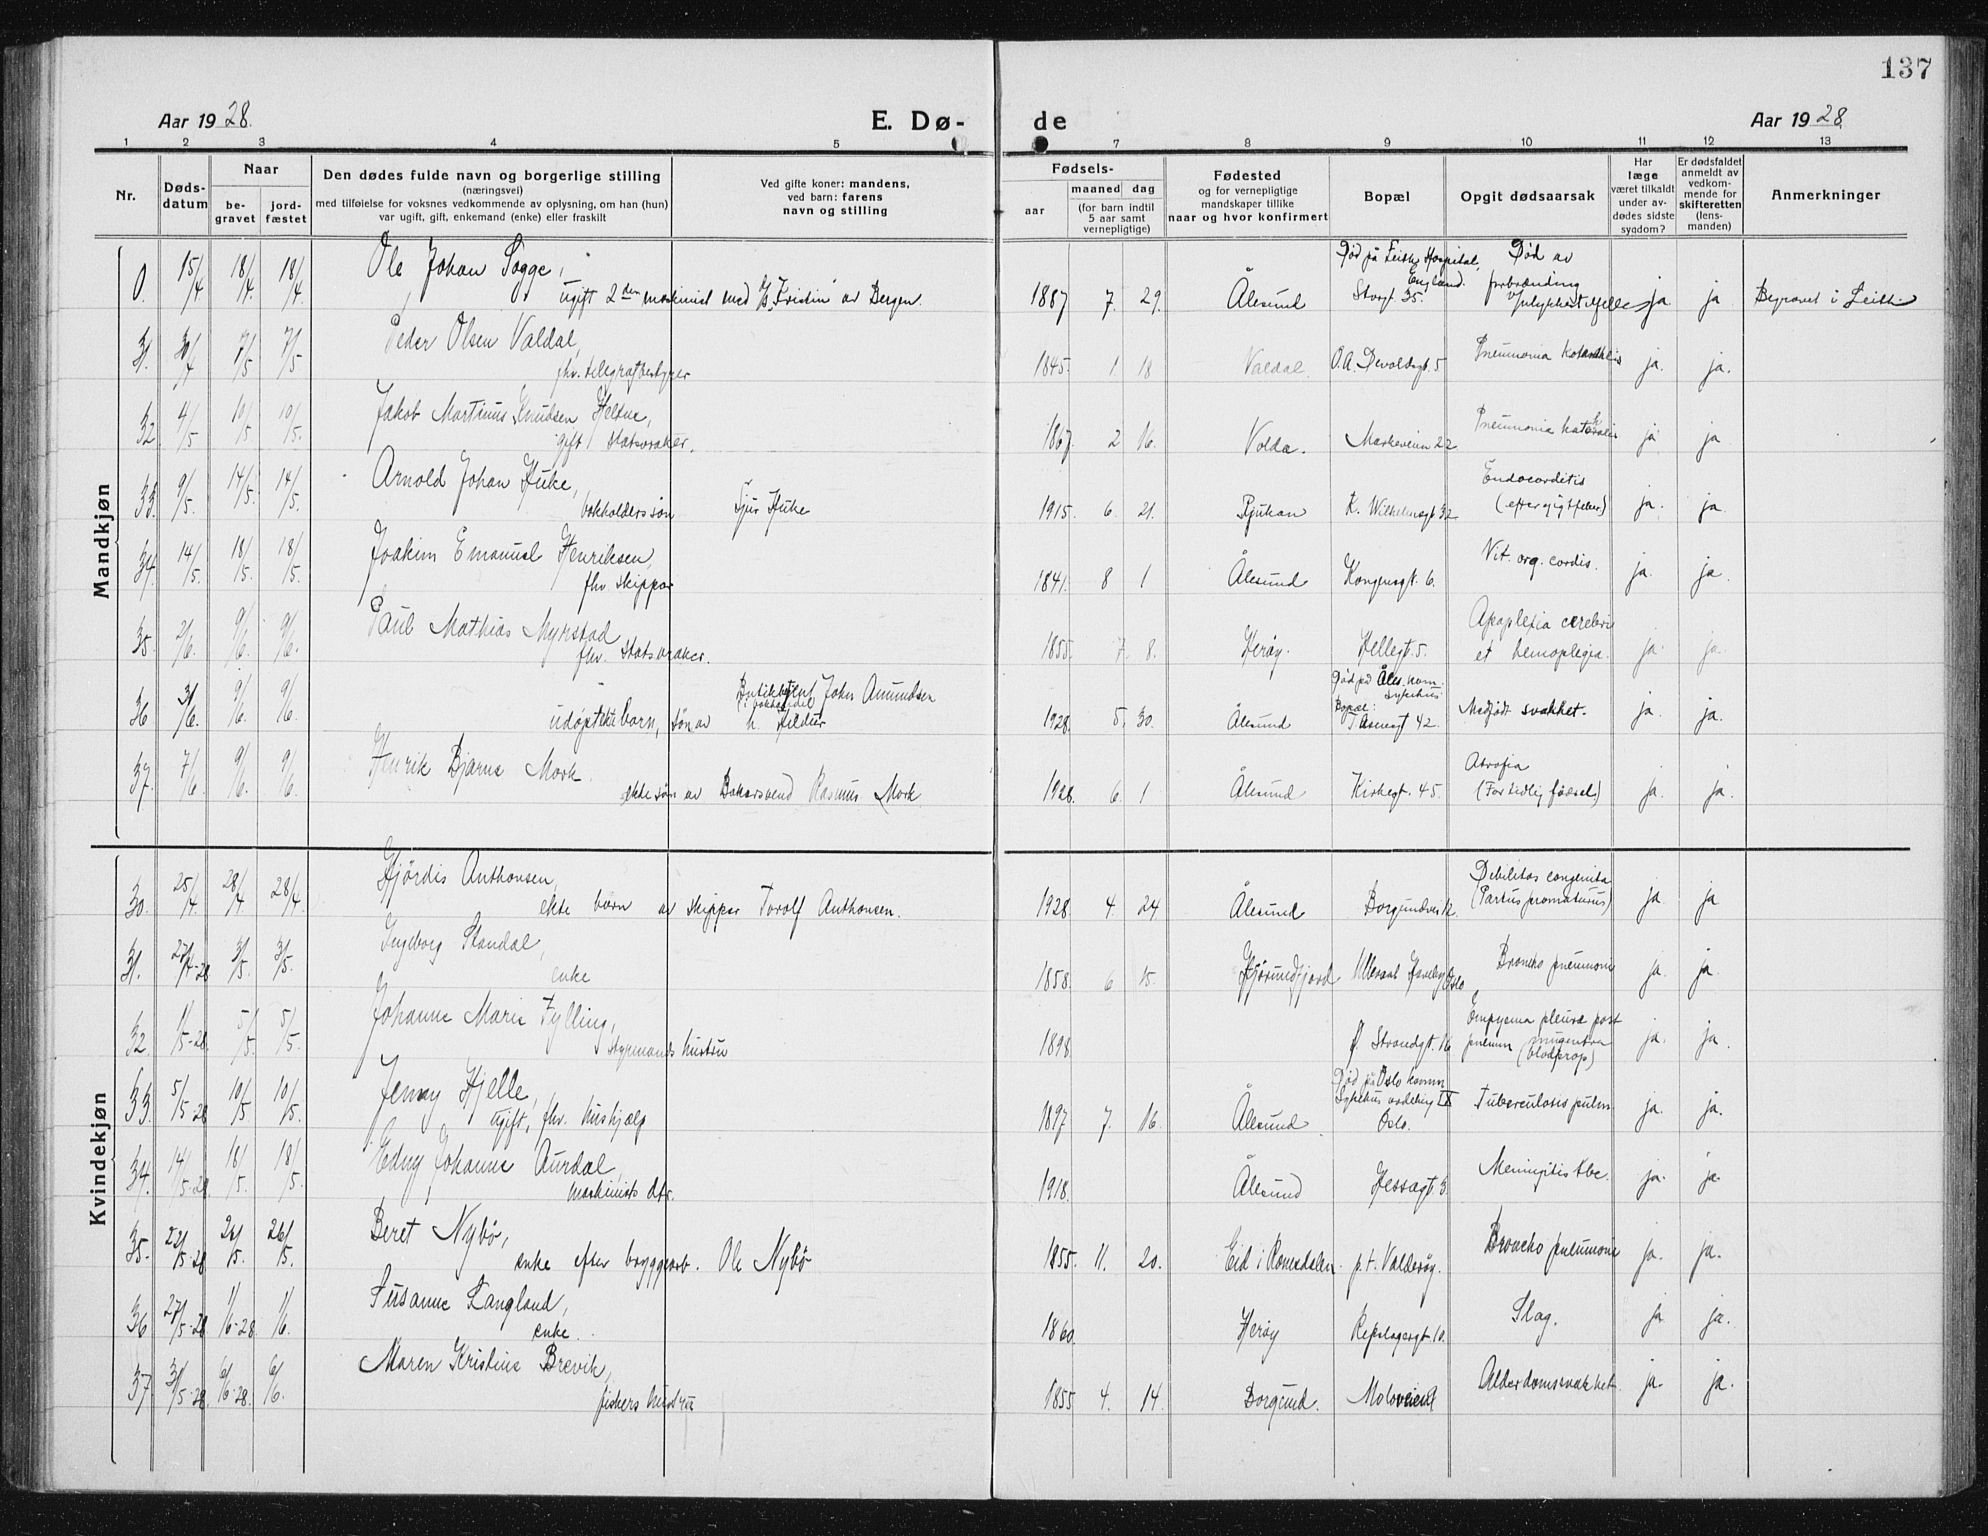 137
Aar 1928.
E. Dø-
de
Aar 1928
1 2 3 4 5 7 8 9 10 11 12 13
Nr.
Døds-
datum
Naar
be-
gravet
jord-
fæstet
Den dødes fulde navn og borgerlige stilling
(næringsvei)
med tilføielse for voksnes vedkommende av oplysning, om han (hun)
var ugift, gift, enkemand (enke) eller fraskilt
Ved gifte koner: mandens,
ved barn: farens
navn og stilling
Fødsels-
aar
maaned
dag
(for barn indtil
5 aar samt
vernepligtige)
Fødested
og for vernepligtige
mandskaper tillike
naar og hvor konfirmert
Bopæl
Opgit dødsaarsak
Har
læge
været tilkaldt
under av-
dødes sidste
sygdom?
Er dødsfaldet
anmeldt av
vedkom-
mende for
skifteretten
(lens-
manden)
Anmerkninger
Mandkjøn
Ole Johan Sogge,
0. 15/4 18/4. 18/4. ugift 2den maskinist med "Kristin" av Bergen.
1887 7. 29. Ålesund
Død på Leith Hospital,
England.
Storgt. 35.
Død av
forbrænding
ja ja Begravet i Leith.
Peder Olsen Valdal,
31. 30/4 7/5 7/5 fhv. telegrafbestyrer
1845. 1 18 Valdal. O.A. Devoldsgt. 5 Pneumonia ja. ja.
Jakob Martinus Knudsen Heltne,
32 4/5 10/5. 10/5. gift
1867. 2 16. Volda. Markeveien 22 Pneumonia ja ja
Arnold Johan Huke,
33. 9/5. 14/5. 14/5. bokholders søn Sjur Huke
1915. 6. 21. Rjukan K. Wilhelmsgt. 32
Endocarditis
ja. ja.
Joakim Emanuel Henriksen,
34. 14/5. 18/5. 18/5. fhv skipper
1841. 8 1 Ålesund Kongensgt. 6. Vit. org. cordis. ja. ja.
Paul Mathias Myrstad
35. 2/6. 9/6. 9/6. fhv.
1855. 7. 8. Herøy. Hellegt. 5.
Apoplexia cerebri
et hemoplegia. ja. ja.
36 3/6. 9/6. 9/6. udøpt barn, søn av John Amundsen
h. Hildur
1928. 5. 30. Ålesund
Død på Åles. kom.
sykehus
Bopæl:
42. Medfødt svakhet. ja. ja.
Henrik Bjarne Mork
37. 7/6. 9/6. 9/6. ekte søn av Bakersvend Rasmus Mork
1928. 6. 1 Ålesund Kirkegt. 45.
Atrofia
(For tidlig fødsel) ja. ja.
Kvindekjøn
Hjørdis Anthonsen,
30. 25/4. 28/4 28/4. ekte barn av skipper Torolf Anthonsen.
1928. 4. 24 Ålesund
Debilitas congenita
(Partus prematurus) ja ja
Ingeborg Standal,
31. 27/4-28 3/5. 3/5. enke
1858. 6 15. Hjørundfjord Oslo Broncho pneumoni ja. ja.
Johanne Marie Fylling,
32. 1/5-28. 5/5. 5/5. styrmands hustru
1898. Ø Strandgt. 16
Empyema pleura post
pneum
(blodprop) ja. ja.
Jenny Hjelle,
33 5/5-28 10/5 10/5. ugift, fhv. hushjælp
1897 7. 16. Ålesund
Død på Oslo komm
Sykehus avdeling IX
Oslo. Tuberculosis pulm. ja. ja.
Edny Johanne Aurdal,
34. 14/5-28. 18/5. 18/5. maskinists dtr.
1918. Ålesund Hessagt 3. Meningitis tbc. ja. ja.
Beret Nybø,
35. 22/5-28 26/5. 26/5. enke efter bryggearb. Ole Nybø
1855. 11. 20. Eid i Romsdalen. p.t. Valderøy. Broncho pneumoni ja. ja.
Susanne Langland,
36 27/5-28 1/6-28. 1/6. enke.
1860. Herøy Repslagergt. 10. Slag. ja ja.
Maren Kristine Brevik,
37 31/5-28. 6/6-28. 6/6. fiskers hustru
1855 4. 14. Borgund. Moloveien Alderdomssvakhet. ja. ja.